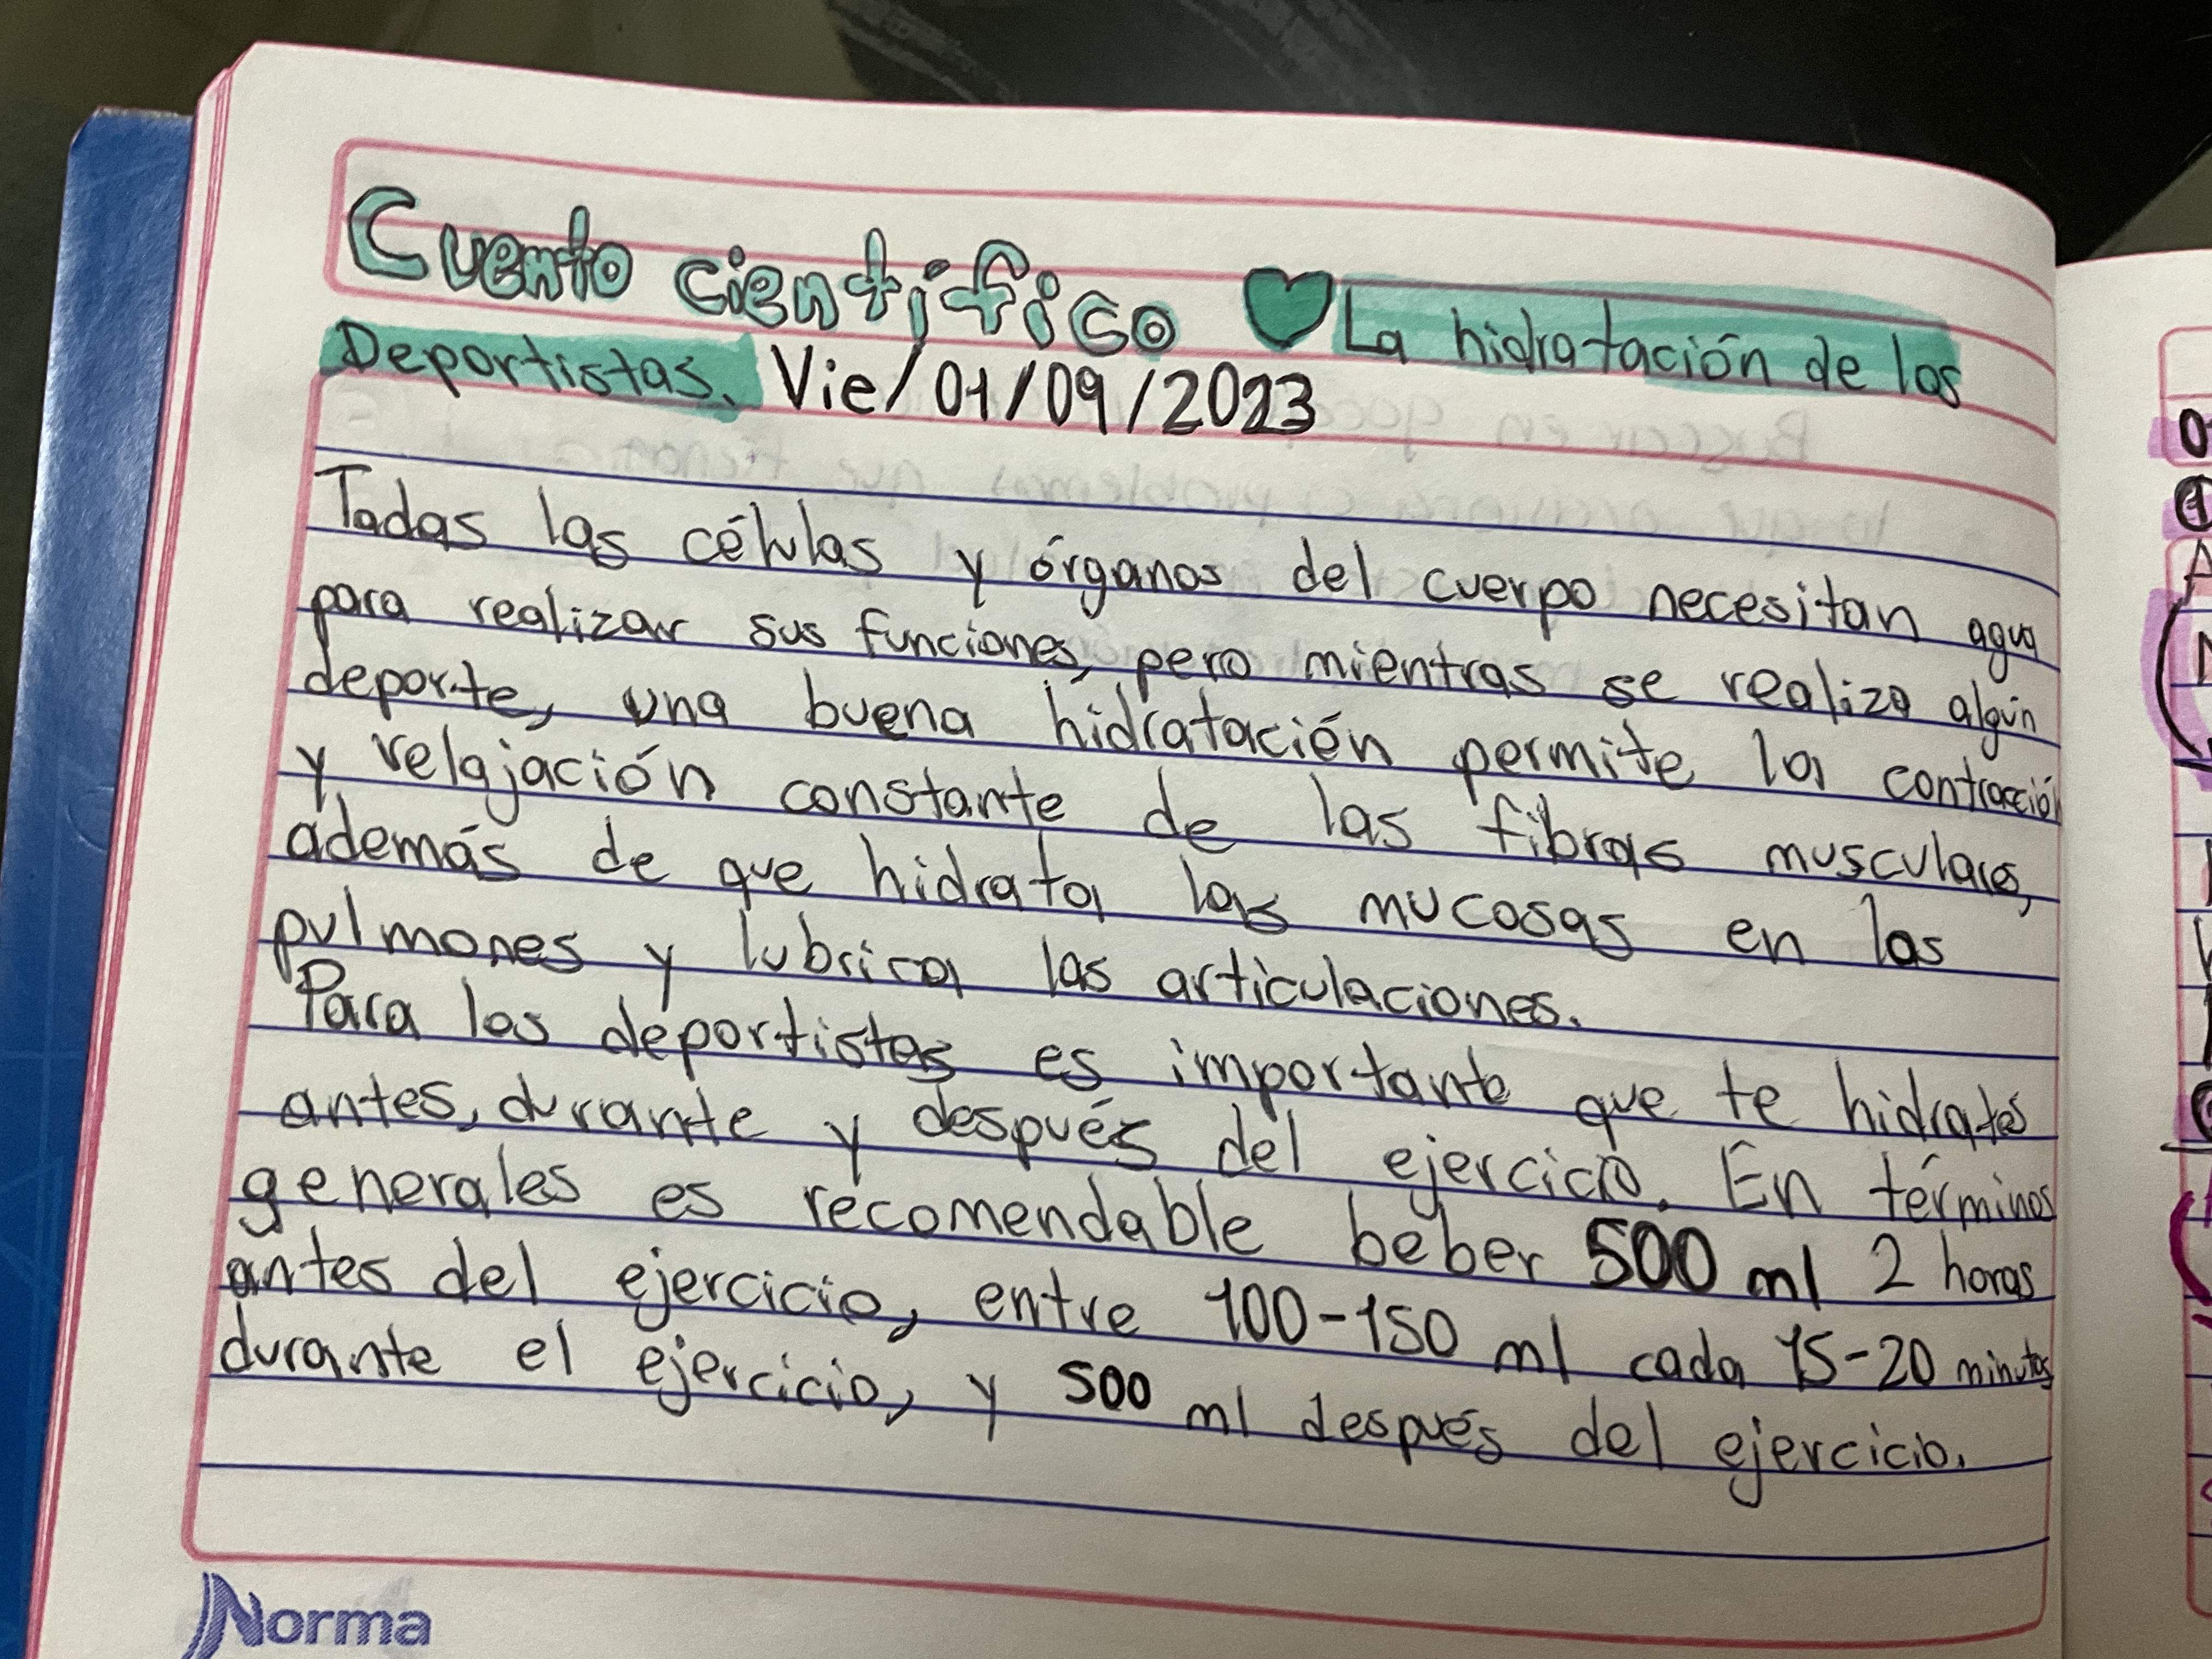 Cuento científico La hidratación de los
Deportistas. Vie/01/09/2023
Todas las células y órganos del cuerpo necesitan agua
para realizar sus funciones, pero mientras se realiza algún
deporte, una buena hidratación permite la contracción
y relajación constante de las fibras musculares,
además de que hidrata las mucosas en los
pulmones y lubrica las articulaciones.
Para los deportistas es importante que te hidrates
antes, durante y después del ejercicio. En términos
generales es recomendable beber 500 ml 2 horas
antes del ejercicio, entre 100-150 ml cada 15-20 minutos
durante el ejercicio, y 500 ml después del ejercicio.
Norma